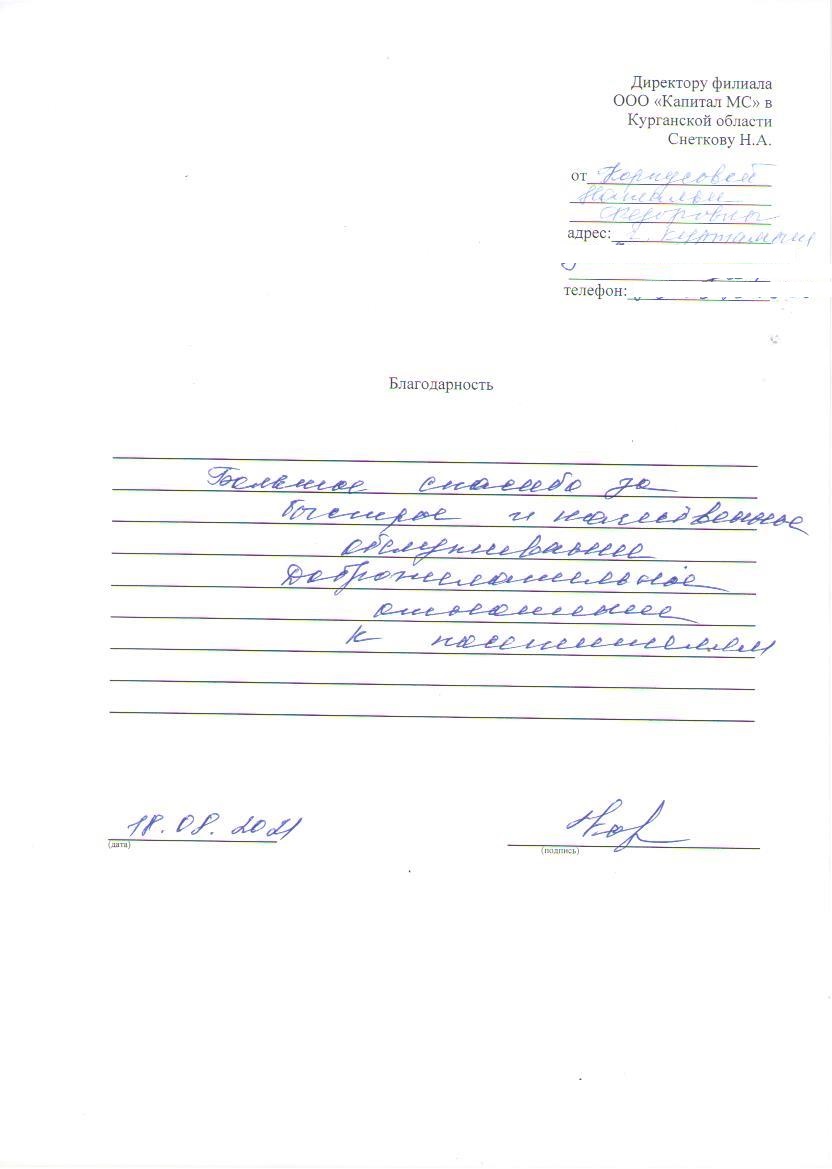 Директору филиала
ООО «Капитал МС» в
Курганской области
Снеткову Н.А.
от Корпусовой
Натальи
Федоровны
адрес: г. Куртамыш
телефон:
Благодарность
Большое спасибо за
быстрое и качественное
обслуживание
Доброжелательное
отношение
к посетителям
18.08.2021
(дата)
(подпись)